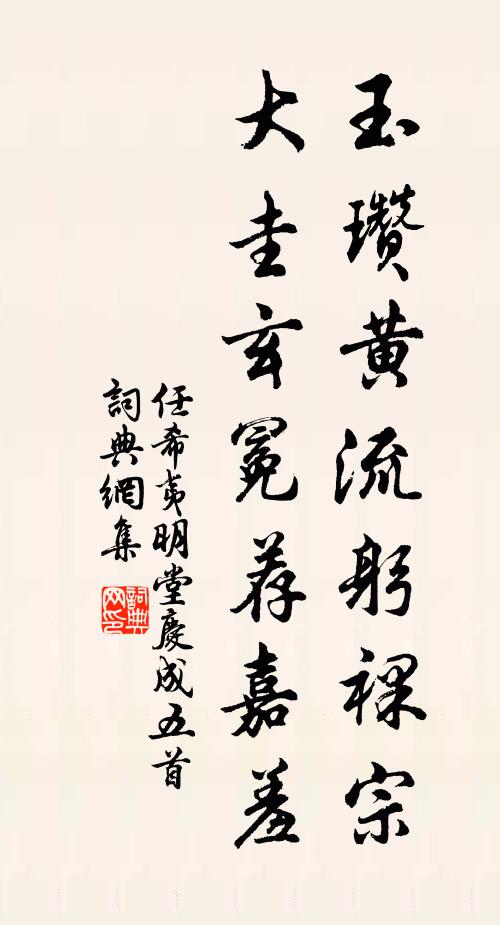 玉瓚黄流躬祼宗
大圭玄冕荐嘉羞
任希夷明堂慶成五首
詞典網集
詞典网印